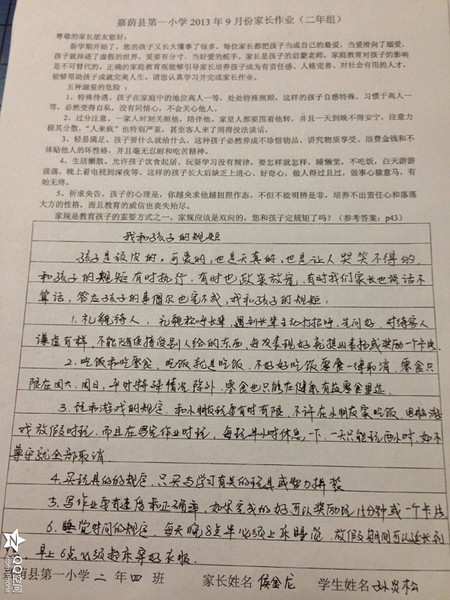 嘉荫县第一小学 2013 年 9 月份家长作业（二年组）
尊敬的家长朋友您好：
新学期开始了，您的孩子又长大懂事了很多，每位家长都把孩子当成自己的最爱，当爱滑向了溺爱，
孩子就掉进了虚假的世界，爱要有分寸，当好爱的舵手，家长是孩子的启蒙老师，家庭教育对孩子的影响
是不可替代的，正确的家庭教育观能够引导家长培养孩子成为有责任感、人格完善、对社会有用的人才，
能够帮助孩子成就完美人生。请您认真学习并完成家长作业。
五种溺爱的危险：
1、特殊待遇。孩子在家庭中的地位高人一等，处处特殊照顾，这样的孩子自感特殊，习惯于高人一
等，必然变得自私，没有同情心，不会关心他人。
2、过分注意。一家人时刻关照他，陪伴他。家里人都要围着他转，并且一天到晚不得安宁，注意力
极其分散，“人来疯”也特别严重，甚至客人来了闹得没法谈话。
3、轻易满足。孩子要什么就给什么。这种孩子必然养成不珍惜物品、讲究物质享受、浪费金钱和不
体贴他人的坏性格，并且毫无忍耐和吃苦精神。
4、生活懒散。允许孩子饮食起居、玩耍学习没有规律，要怎样就怎样，睡懒觉，不吃饭，白天游游
荡荡，晚上看电视到深夜等。这样的孩子长大后缺乏上进心、好奇心，做人得过且过，做事心猿意马，有
始无终。
5、祈求央告。孩子的心理是，你越央求他越扭捏作态，不但不能明辨是非，培养不出责任心和落落
大方的性格，而且教育的威信也丧失殆尽。
家规是教育孩子的重要方式之一。家规应该是双向的，您和孩子定规矩了吗？（参考答案：p43）
我和孩子的规矩
孩子是调皮的，可爱的，也是天真的，也是让人哭笑不得的，
和孩子的规矩有时执行，有时也放宽，有时我们家长也说话不
算话，答应孩子的事偶尔也完不成，我和孩子的规矩：
1. 礼貌待人，礼貌称呼长辈，遇到长辈主动打招呼，先问好，对待客人
谦虚有样，不能随便接受别人给的东西，每次表现好都提出表扬或奖励一个卡片
2. 吃饭和吃零食，吃饭就是吃饭，不好好吃饭零食一律取消，零食只
限在周六、周日，平时特殊情况除外，零食也只能在健康有益零食里选
3. 玩和游戏的规定，和小朋友玩要有时有限，不许在小朋友家吃饭，电脑游
戏放假时玩，而且在写完作业时玩，每玩半小时休息一下，一天只能玩两小时，如不
遵守就全部取消
4. 买玩具的规定，只买与学习有关的玩具或智力拼装
5. 写作业要有速度和正确率，如果完成的好可以奖励玩15分钟或一个卡片
6. 睡觉时间的规定，每天晚8点半必须上床睡觉，放假期间可以延长到
早上6点必须起床穿好衣服
嘉荫县第一小学 二 年 四 班 家长姓名 侯金龙 学生姓名
QQ空间